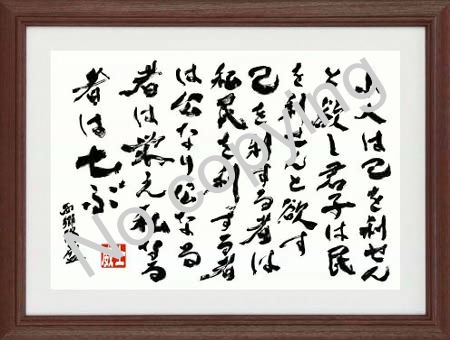 小人は己を利せん
と欲し君子は民
を利せんと欲す
己を利する者は
私民を利する者
は公なり公なる
者は栄え私なる
者は亡ぶ
西郷隆盛
No copying